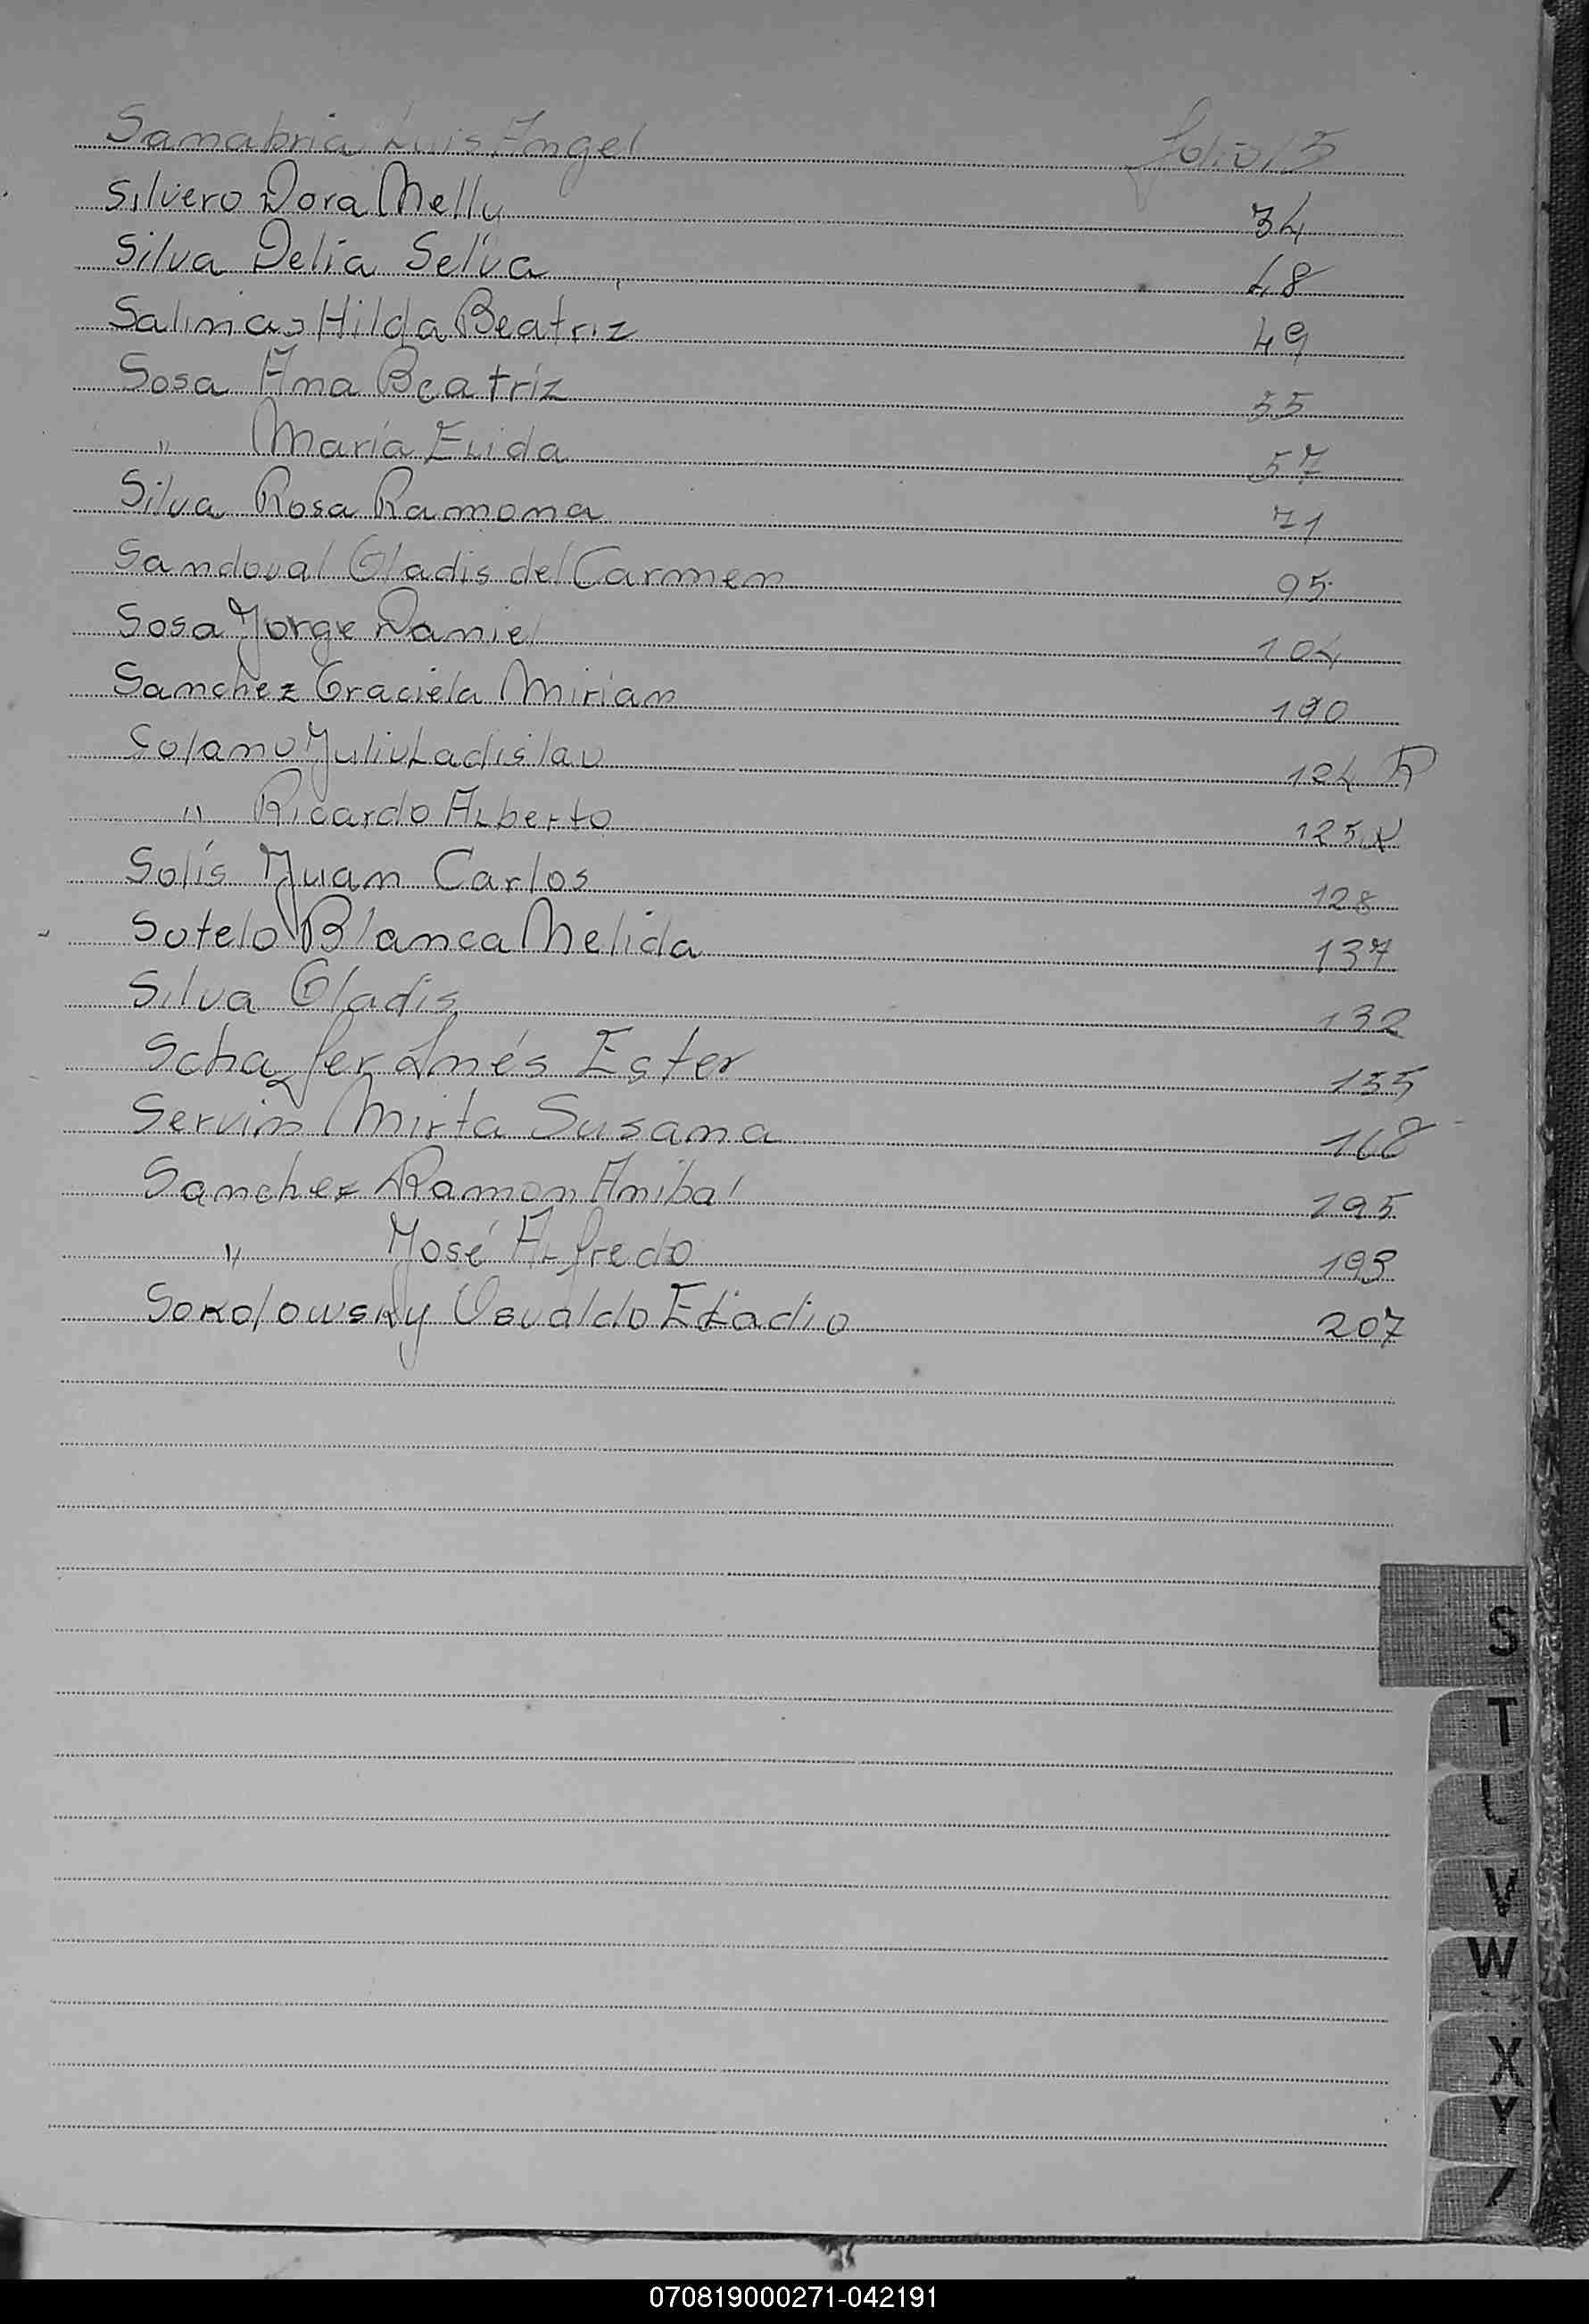 Sanabria Luis Angel folio 15
Silvero Dora Nelly 34
Silva Delia Selva 48
Salinas Hilda Beatriz 49
Sosa Ana Beatriz 55
" María Elida 57
Silva Rosa Ramona 71
Sandoval Gladis del Carmen 95
Sosa Jorge Daniel 104
Sanchez Graciela Mirian 190
Solano Julio Ladislao 124
" Ricardo Alberto 125
Solís Juan Carlos 128
Sotelo Blanca Nelida 137
Silva Gladis 132
Schaffer Inés Ester 155
Servin Mirta Susana 168
Sanchez Ramon Anibal 195
" José Alfredo 193
Sokolowsky Osvaldo Eladio 207
S
T
V
W
X
Y
070819000271-042191